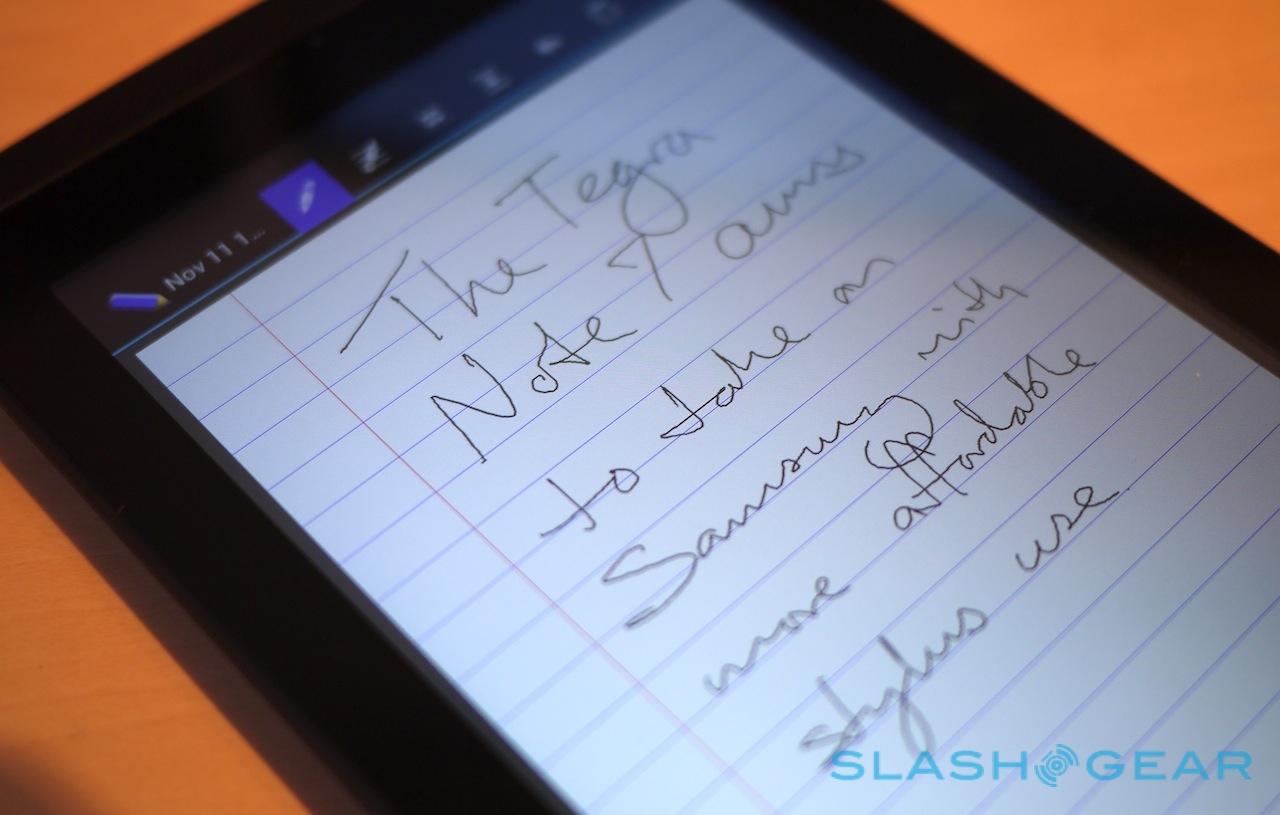 Nov 11 1...
The Tegra
Note 7 aims
to take on
Samsung with
more affordable
stylus use
SLASHGEAR